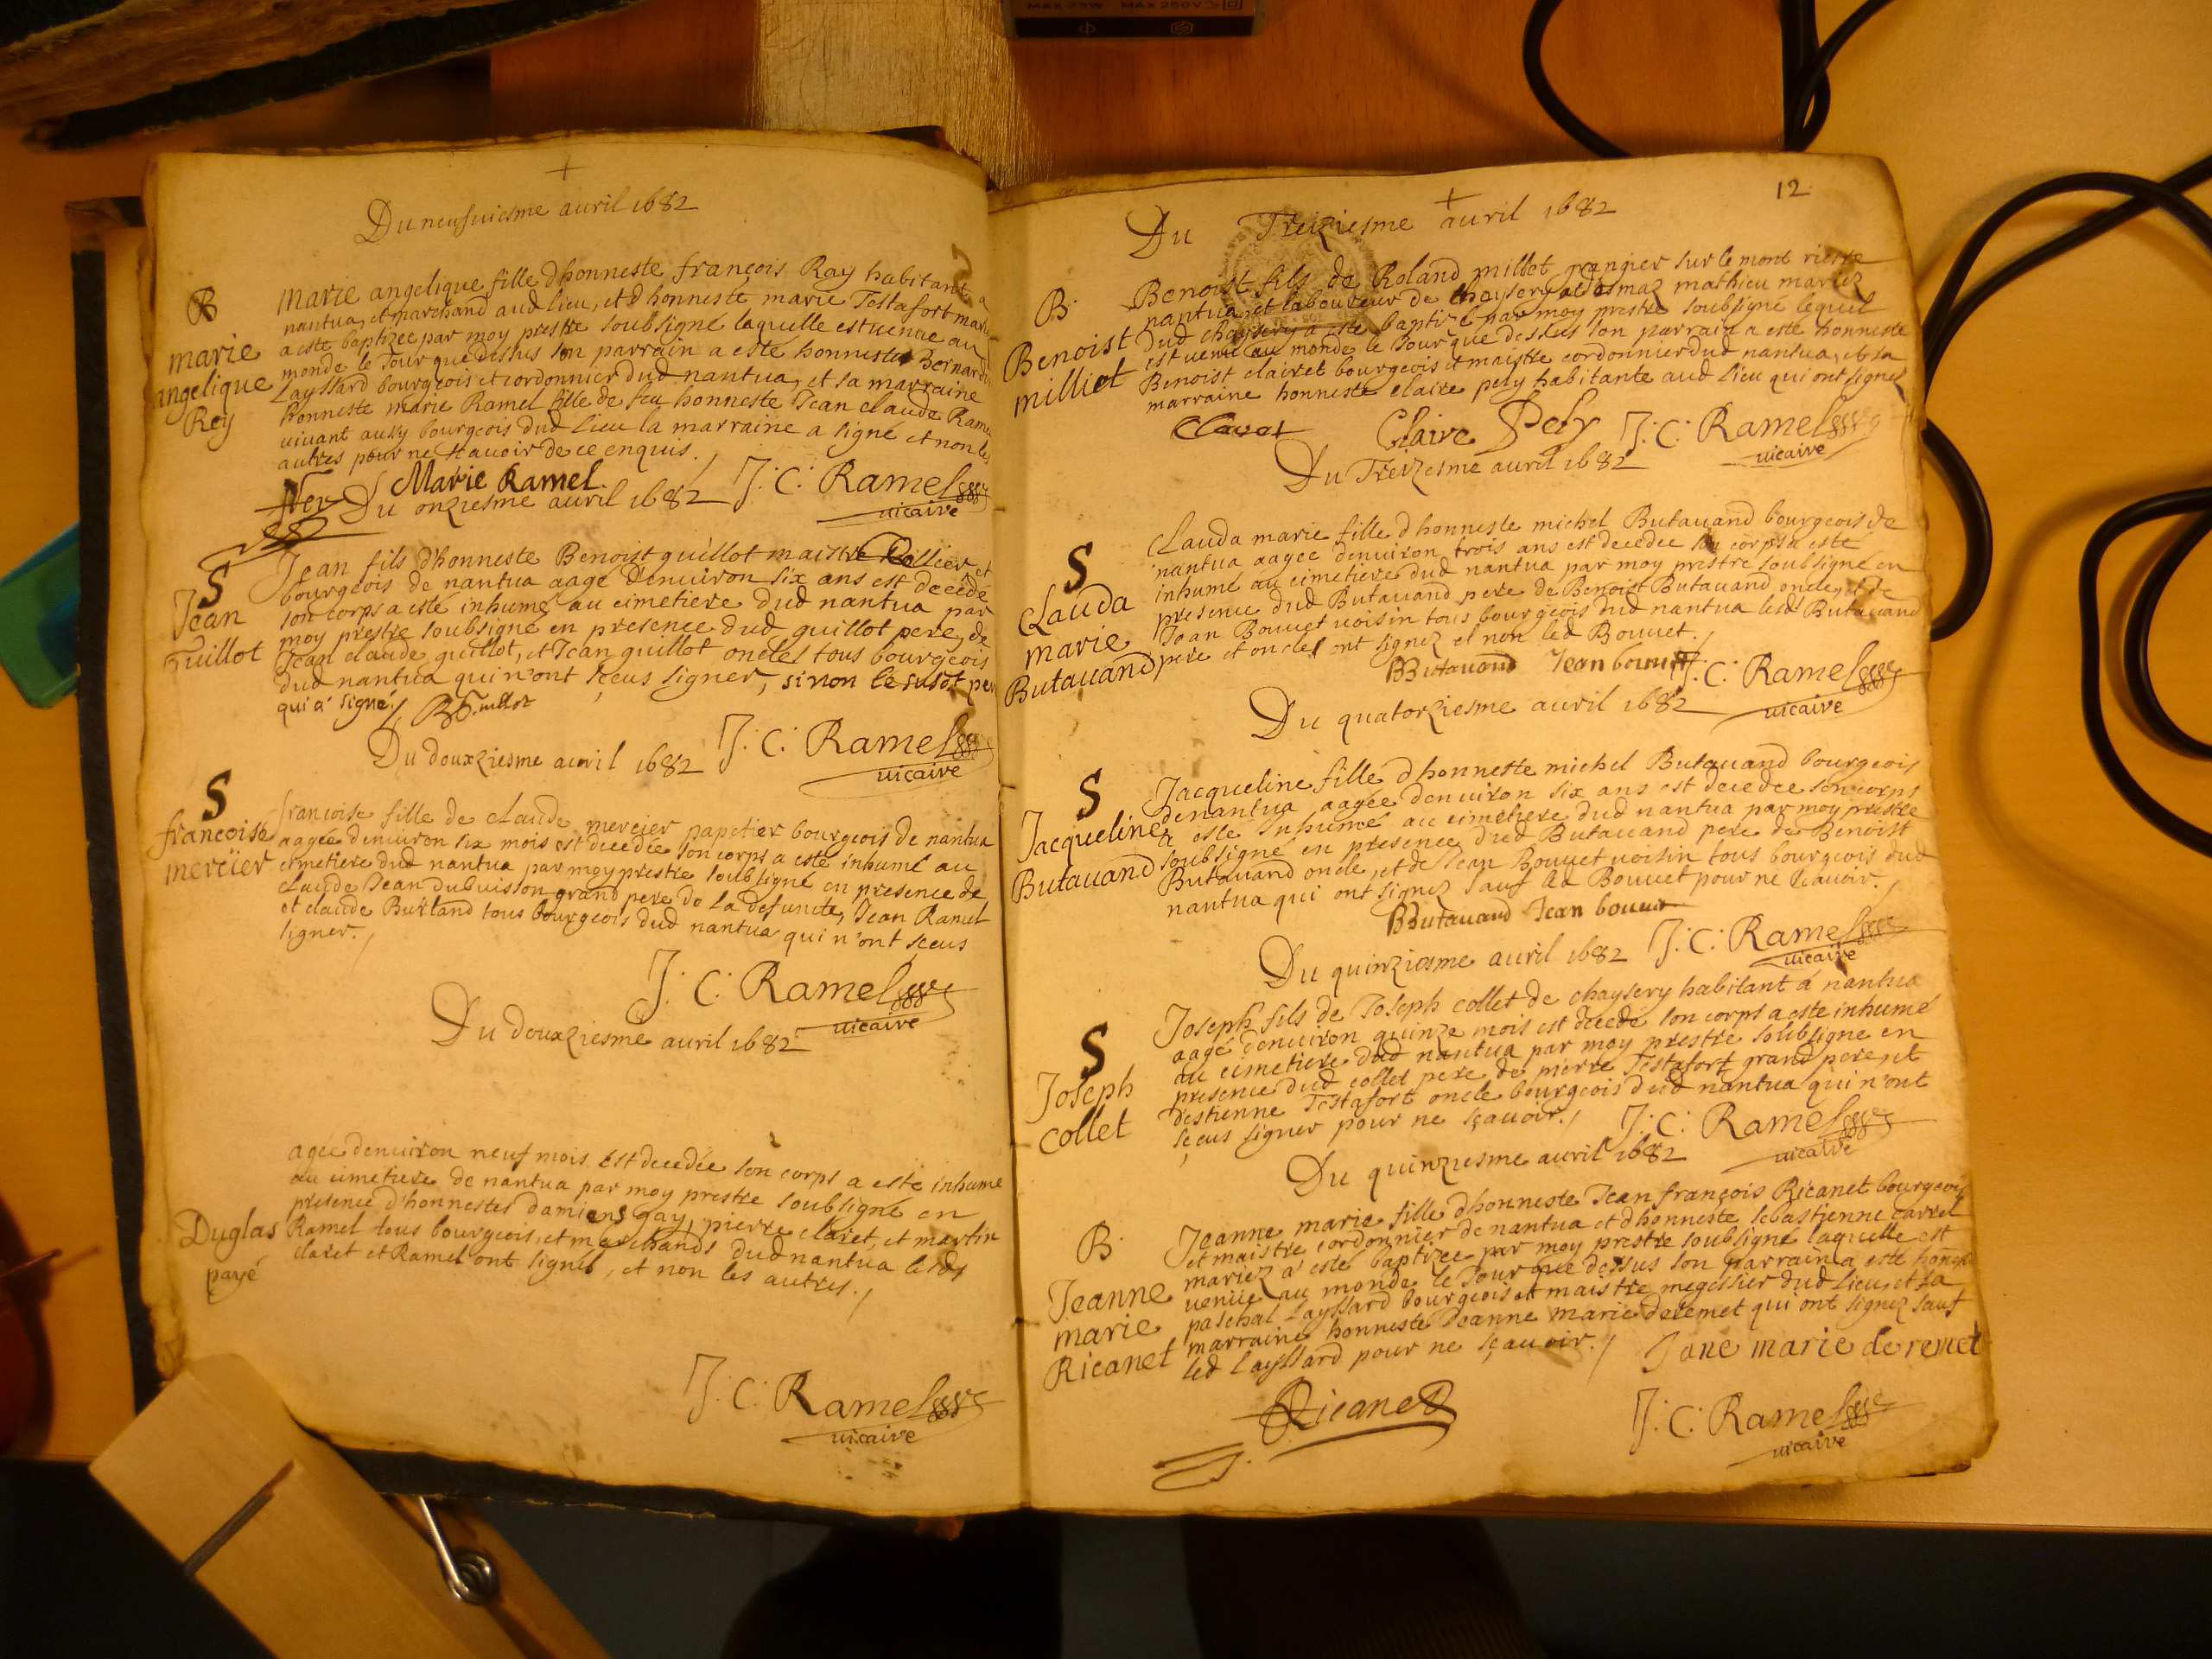 MAX 23W MAX 250V
Du neufuiesme auril 1682
B
marie
angelique
Rey
Marie angelique fille d'honneste françois Ray habitant a
nantua, et marchand aud lieu, et d'honneste marie Testafort mariez
a esté baptizee par moy prestre soubsigné laquelle est venue au
monde le Jour que dessus son parrain a esté honneste Bernard
Layssard bourgeois et cordonnier dud nantua, et sa marraine
honneste marie Ramel fille de feu honneste Jean claude Ramel
viuant aussy bourgeois dud lieu la marraine a signé et non les
autres pour ne sçauoir de ce enquis.
Marie Ramel
J: C: Ramel
vicaire
Du onziesme auril 1682
S
Jean
Guillot
Jean fils d'honneste Benoist guillot maistre et
bourgeois de nantua aagé d'enuiron six ans est decedé
son corps a esté inhumé au cimetiere dud nantua par
moy prestre soubsigné en presence dud guillot pere, de
Jean claude guillot, et Jean guillot oncles tous bourgeois
dud nantua qui n'ont sceus signer, sinon le susdt per
qui a signé. B Guillot
J: C: Ramel
vicaire
Du douxziesme auril 1682
S
francoise
mercier
francoise fille de claude mercier papetier bourgeois de nantua
aagée denuiron six mois est decedée son corps a esté inhumé au
cimetiere dud nantua par moy prestre soubsigné en presence de
claude Jean dubuisson grand pere de la defuncte, Jean Ramel
et claude Burland tous bourgeois dud nantua qui n'ont sceus
signer.
J: C: Ramel
vicaire
Du douxziesme auril 1682
Duglas
payé
agee denuiron neuf mois est decedée son corps a esté inhume
au cimetiere de nantua par moy prestre soubsigné en
presence d'honnestes damiens gay, pierre claret, et martin
Ramel tous bourgeois, et marchands dud nantua lesds
claret et Ramel ont signés, et non les autres.
J: C: Ramel
vicaire
12
Du Treiziesme auril 1682
B
Benoist
milliet
Benoist fils de Roland millet grangier sur le mont riere
nantua, et laboureur de chaysery et mathieu mariez
dud chaysery a esté baptizé par moy prestre soubsigné lequel
est venu au monde le Jour que dessus son parrain a esté honneste
Benoist clairet bourgeois et maistre cordonnier dud nantua, et sa
marraine honneste claire pely habitante aud lieu qui ont signez
Claire Pely J: C: Ramel
vicaire
Du Treizesme auril 1682
S
Clauda
marie
Butauand
Clauda marie fille d'honneste michel Butauand bourgeois de
nantua aagee denuiron trois ans est decedee son corps a esté
inhumé au cimetiere dud nantua par moy prestre soubsigné en
presence dud Butauand pere de Benoist Butauand oncle, et de
Jean Bouuet voisin tous bourgeois dud nantua lesds Butauand
pere et oncles ont signez et non led Bouuet.
BButauand Jean bouuet J: C: Ramel
vicaire
Du quatorziesme auril 1682
S
Jacqueline
Butauand
Jacqueline fille d'honneste michel Butauand bourgeois
de nantua aagée denuiron six ans est decedee son corps
a esté inhumé au cimetiere dud nantua par moy prestre
soubsigné en presence dud Butauand pere de Benoist
Butauand oncle, et de Jean Bouuet voisin tous bourgeois dud
nantua qui ont signez sauf led Bouuet pour ne sçauoir.
BButauand Jean bouuet
J: C: Ramel
vicaire
Du quinziesme auril 1682
S
Joseph
collet
Joseph fils de Joseph collet de chaysery habitant á nantua
aagé denuiron quinze mois est decedé son corps a esté inhumé
au cimetiere dud nantua par moy prestre soubsigné en
presence dud collet pere de pierre Testafort grand pere, et
destienne Testafort oncle bourgeois dud nantua qui n'ont
sceus signer pour ne sçauoir.
J: C: Ramel
vicaire
Du quinziesme auril 1682
B
Jeanne
marie
Ricanet
Jeanne marie fille d'honneste Jean françois Ricanet bourgeois
et maistre cordonnier de nantua et d'honneste sebastienne carrel
mariez a esté baptizee par moy prestre soubsigné laquelle est
venüe au monde le Jour que dessus son parrain a esté honneste
paschal Layssard bourgeois et maistre megessier dud lieu, et sa
marraine honneste Jeanne marie deremet qui ont signez sauf
led Layssard pour ne sçauoir.
Jane marie de remet
Ricanet
J: C: Ramel
vicaire